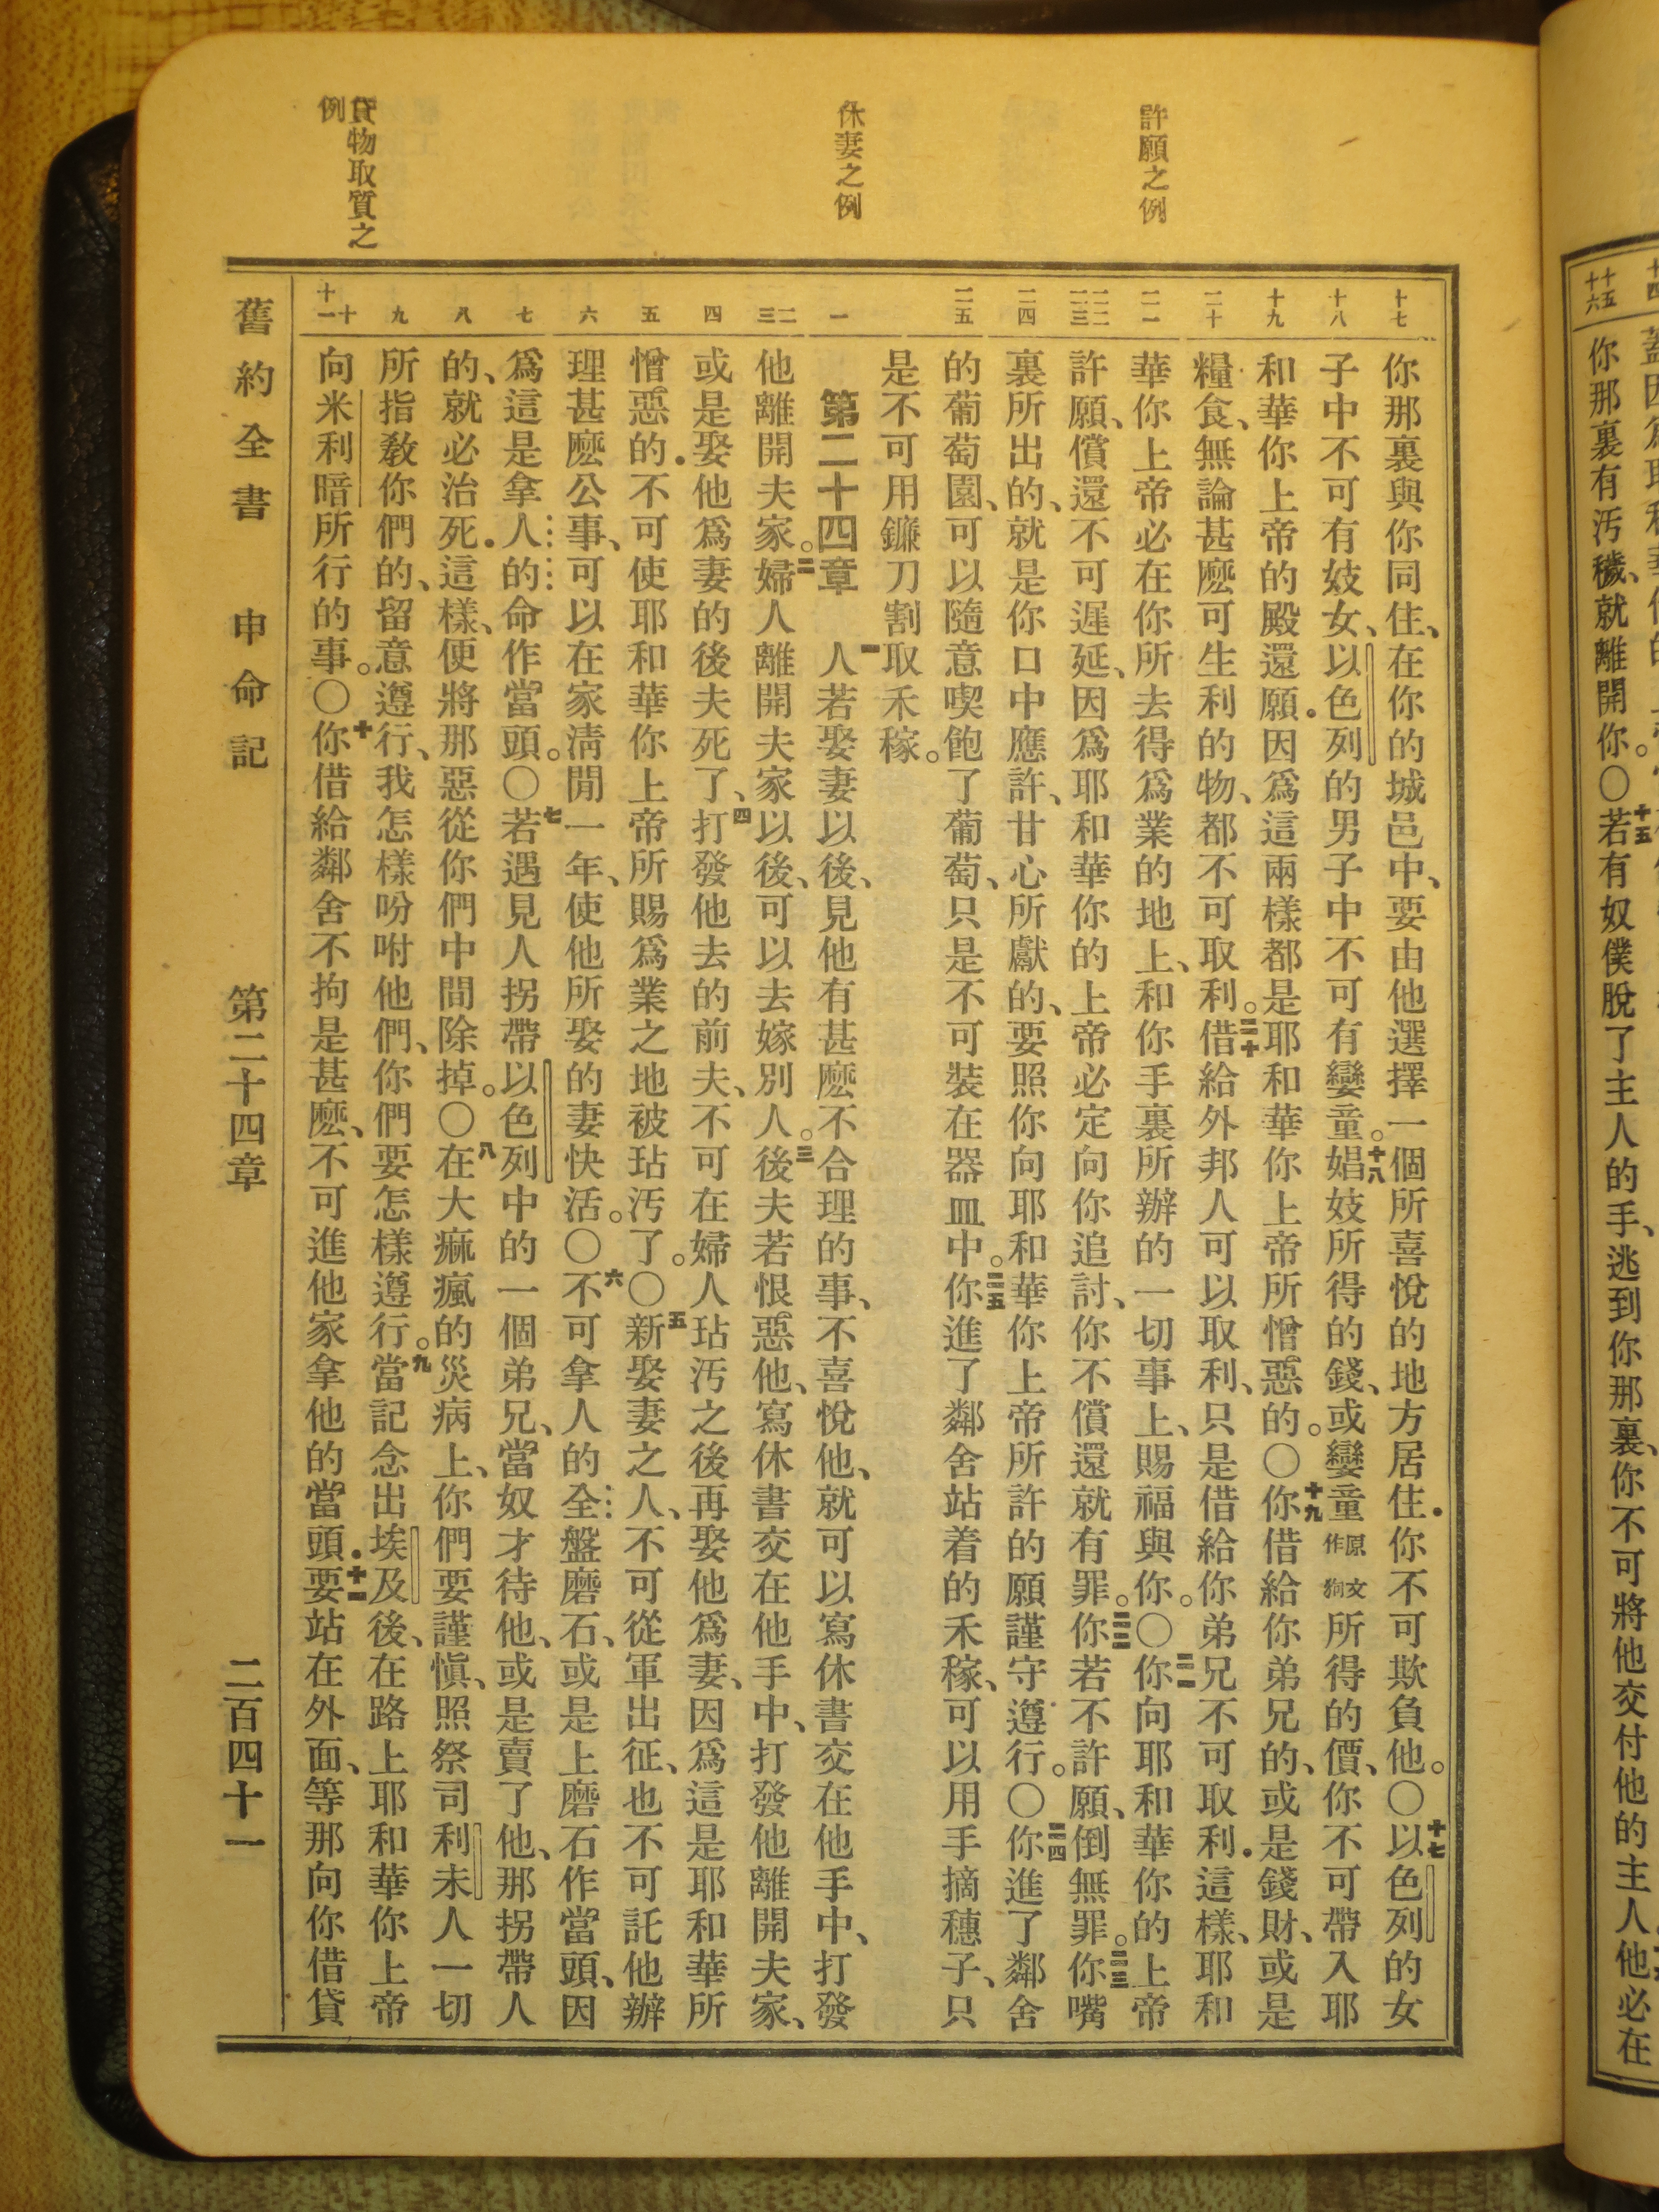 許願之例
休妻之例
貸物取質之
例
十七
十八
十九
二十
二一
二二
二三
二四
二五
一
二
三
四
五
六
七
八
九
十
十一
你那裏與你同住、在你的城邑中、要由他選擇一個所喜悅的地方居住．你不可欺負他。○十七以色列的女
子中不可有妓女、以色列的男子中不可有孌童。十八娼妓所得的錢、或孌童原文作狗所得的價、你不可帶入耶
和華你上帝的殿還願．因爲這兩樣都是耶和華你上帝所憎惡的。○十九你借給你弟兄的、或是錢財、或是
糧食、無論甚麽可生利的物、都不可取利。二十借給外邦人可以取利、只是借給你弟兄不可取利．這樣、耶和
華你上帝必在你所去得爲業的地上、和你手裏所辦的一切事上、賜福與你。○二一你向耶和華你的上帝
許願、償還不可遲延、因爲耶和華你的上帝必定向你追討、你不償還就有罪。二二你若不許願、倒無罪。二三你嘴
裏所出的、就是你口中應許、甘心所獻的、要照你向耶和華你上帝所許的願謹守遵行。○二四你進了鄰舍
的葡萄園、可以隨意喫飽了葡萄、只是不可裝在器皿中。二五你進了鄰舍站着的禾稼、可以用手摘穗子、只
是不可用鐮刀割取禾稼。
第二十四章 一人若娶妻以後、見他有甚麽不合理的事、不喜悅他、就可以寫休書交在他手中、打發
他離開夫家。二婦人離開夫家以後、可以去嫁別人。三後夫若恨惡他、寫休書交在他手中、打發他離開夫家、
或是娶他爲妻的後夫死了、四打發他去的前夫、不可在婦人玷汚之後再娶他爲妻、因爲這是耶和華所
憎惡的．不可使耶和華你上帝所賜爲業之地被玷汚了。○五新娶妻之人、不可從軍出征、也不可託他辦
理甚麽公事、可以在家淸閒一年、使他所娶的妻快活。○六不可拿人的全盤磨石、或是上磨石作當頭、因
爲這是拿人的命作當頭。○七若遇見人拐帶以色列中的一個弟兄、當奴才待他、或是賣了他、那拐帶人
的、就必治死．這樣、便將那惡從你們中間除掉。○八在大痲瘋的災病上、你們要謹愼、照祭司利未人一切
所指敎你們的、留意遵行、我怎樣吩咐他們、你們要怎樣遵行。九當記念出埃及後、在路上耶和華你上帝
向米利暗所行的事。○十你借給鄰舍不拘是甚麽、不可進他家拿他的當頭．十一要站在外面、等那向你借貸
舊約全書 申命記 第二十四章 二百四十一
十五
十六
你那裏有汚穢、就離開你。○十五若有奴僕脫了主人的手、逃到你那裏、你不可將他交付他的主人他必在